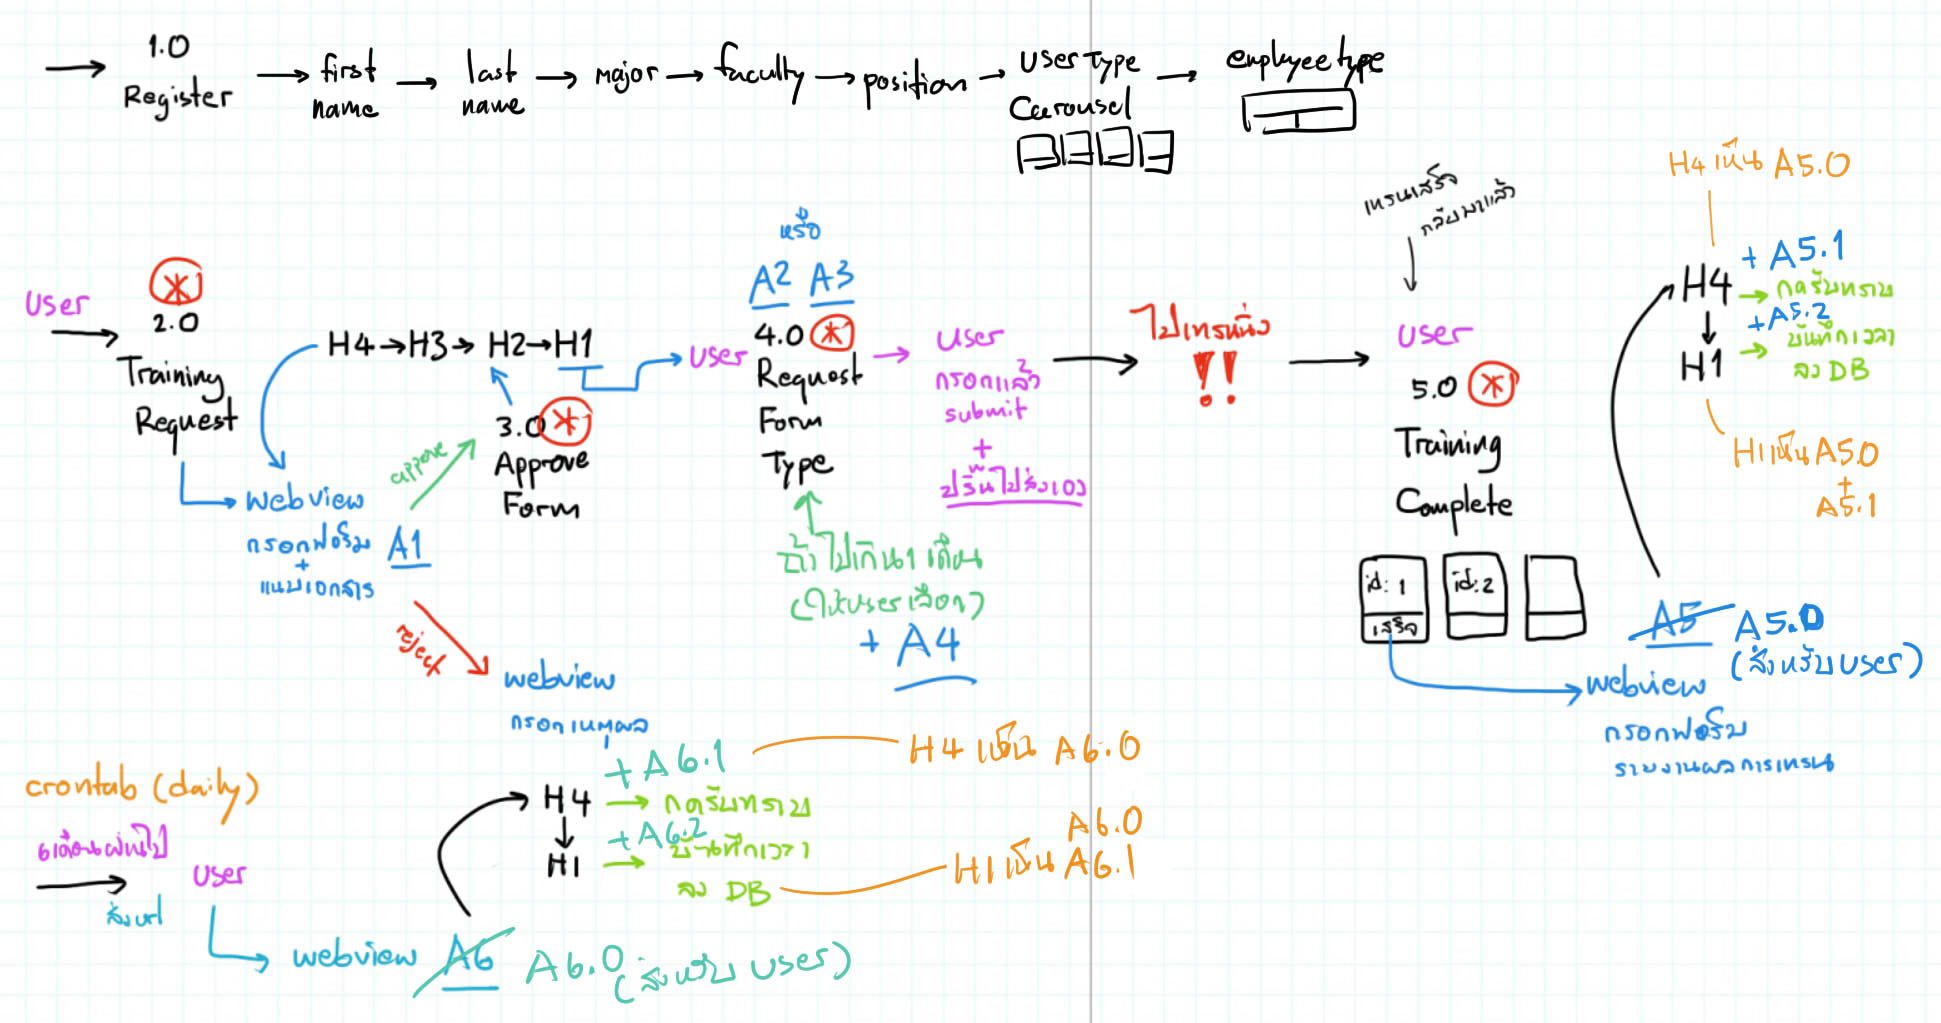 1.0
Register
first
name
last
name
major
faculty
position
User Type
Carousel
employee type
User
2.0
Training
Request
H4 → H3 → H2 → H1
3.0
Approve
Form
approve
reject
webview
กรอกฟอร์ม
+
แนบเอกสาร
A1
webview
กรอกเหตุผล
หรือ
A2 A3
User
4.0
Request
Form
Type
ถ้าไปเกิน 1 เดือน
(ให้ user เลือก)
+ A4
User
กรอกแล้ว
submit
+
ปริ้นไปส่งเอง
ไปเทรนนิ่ง
!!
เทรนเสร็จ
กลับมาแล้ว
User
5.0
Training
Complete
id: 1
เสร็จ
id: 2
webview
กรอกฟอร์ม
รายงานผลการเทรน
A5
A5.0
(สำหรับ user)
H4 เห็น A5.0
H4
+ A5.1
กดรับทราบ
H1
+ A5.2
บันทึกเวลา
ลง DB
H1 เห็น A5.0
+
A5.1
crontab (daily)
6 เดือนผ่านไป
User
ส่ง url
webview
A6
A6.0
(สำหรับ user)
H4
+ A6.1
กดรับทราบ
H1
+ A6.2
บันทึกเวลา
ลง DB
H4 เห็น A6.0
A6.0
H1 เห็น A6.1